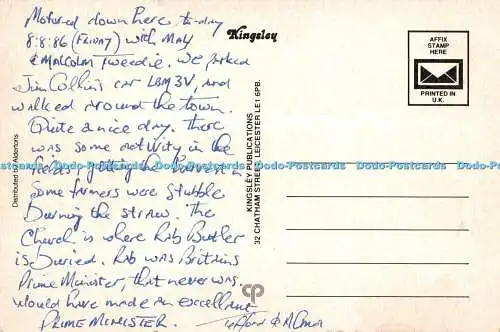 Motored down here to-day
8.8.86 (FRIDAY) with MAY
& MALCOLM Tweedie. We parked
Jim Collin's car LBM3V, and
walked around the town.
Quite a nice day. There
was some activity in the
fields getting the harvest in
Some farmers were stubble
Burning the straw. The
Church is where Rab Butler
is Buried. Rab was Britains
Prime Minister, that never was.
Would have made an excellent
PRIME MINISTER.
Kingsley
AFFIX
STAMP
HERE
PRINTED IN
U.K.
Distributed by Aldertons
KINGSLEY PUBLICATIONS
32 CHATHAM STREET, LEICESTER LE1 6PB.
Dodo-Postcards Dodo-Postcards Dodo-Postcards Dodo-Postcards Dodo-Postcards Dodo-Postcards
cp